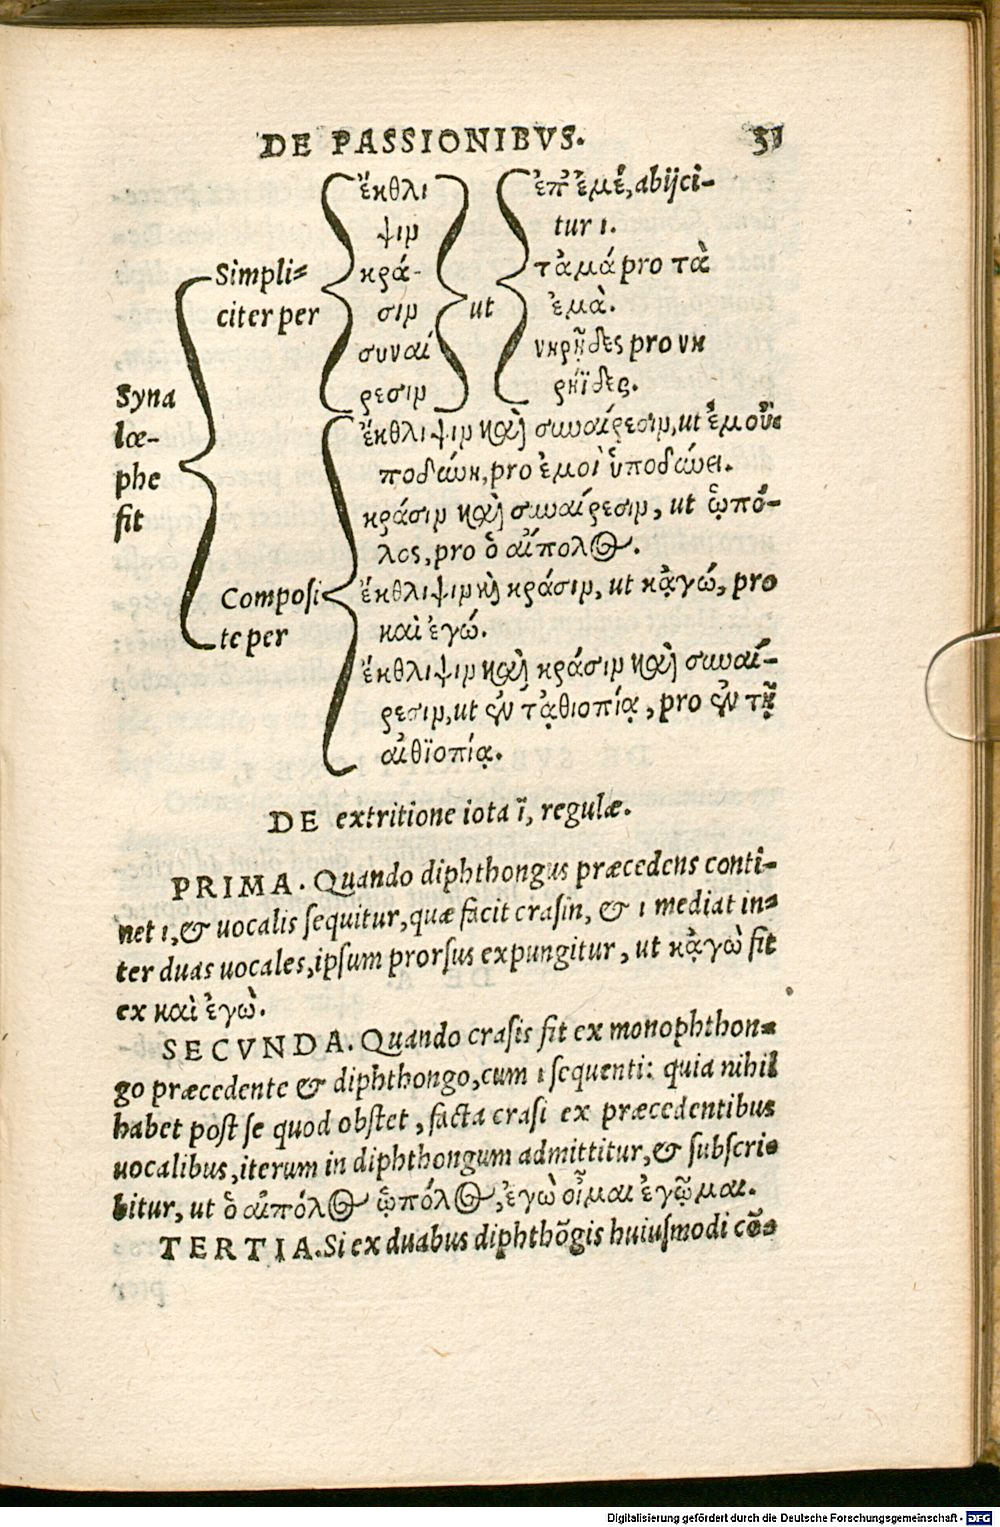 DE PASSIONIBVS. 31
ἔκθλι
ψιν
κρά-
σιν
συναί
ρεσιν
ut
ἐπ' ἐμέ, abijci-
tur ι.
τἀμά pro τὰ
ἐμὰ.
νκρῇδες pro νκ
ρκίδες.
Simpli=
citer per
Syna
lœ-
phe
fit
ἔκθλιψιν καὶ συναίρεσιν, ut ἐμοὐ=
ποδώκ, pro ἐμοὶ ὑποδώει.
κράσιν καὶ συναίρεσιν, ut ᾧπό-
λος, pro ὁ αἴπολος.
Composi
te per
ἔκθλιψιν καὶ κράσιν, ut κᾀγώ, pro
καὶ ἐγώ.
ἔκθλιψιν καὶ κράσιν καὶ συναί-
ρεσιν, ut ἐν τᾀθιοπίᾳ, pro ἐν τῇ
αἰθϊοπίᾳ.
DE extritione iota ῖ, regulæ.
PRIMA. Quando diphthongus præcedens conti-
net ι, & uocalis sequitur, quæ facit crasin, & ι mediat in=
ter duas uocales, ipsum prorsus expungitur, ut κᾀγὼ fit
ex καὶ ἐγὼ.
SECVNDA. Quando crasis fit ex monophthon=
go præcedente & diphthongo, cum ι sequenti: quia nihil
habet post se quod obstet, facta crasi ex præcedentibus
uocalibus, iterum in diphthongum admittitur, & subscri=
bitur, ut ὁ αἴπόλος ᾧπόλος, ἐγὼ οἶμαι ἐγᾦμαι.
TERTIA. Si ex duabus diphthõgis huiusmodi cõ=